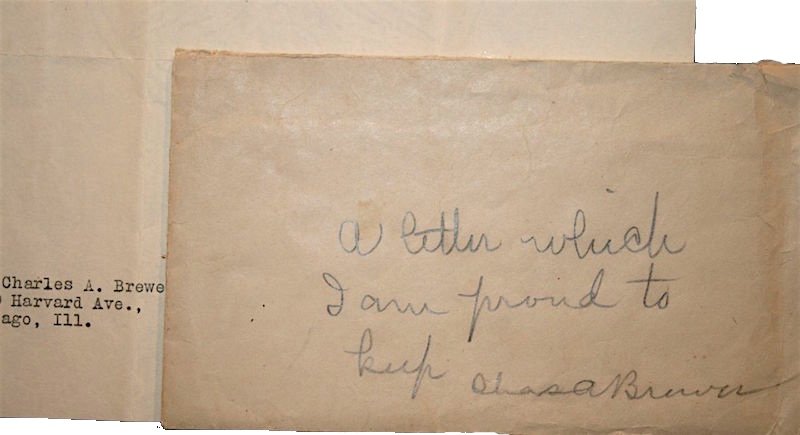 Charles A. Brewe
Harvard Ave.,
ago, Ill.
A letter which
I am proud to
keep Chas A Brewer